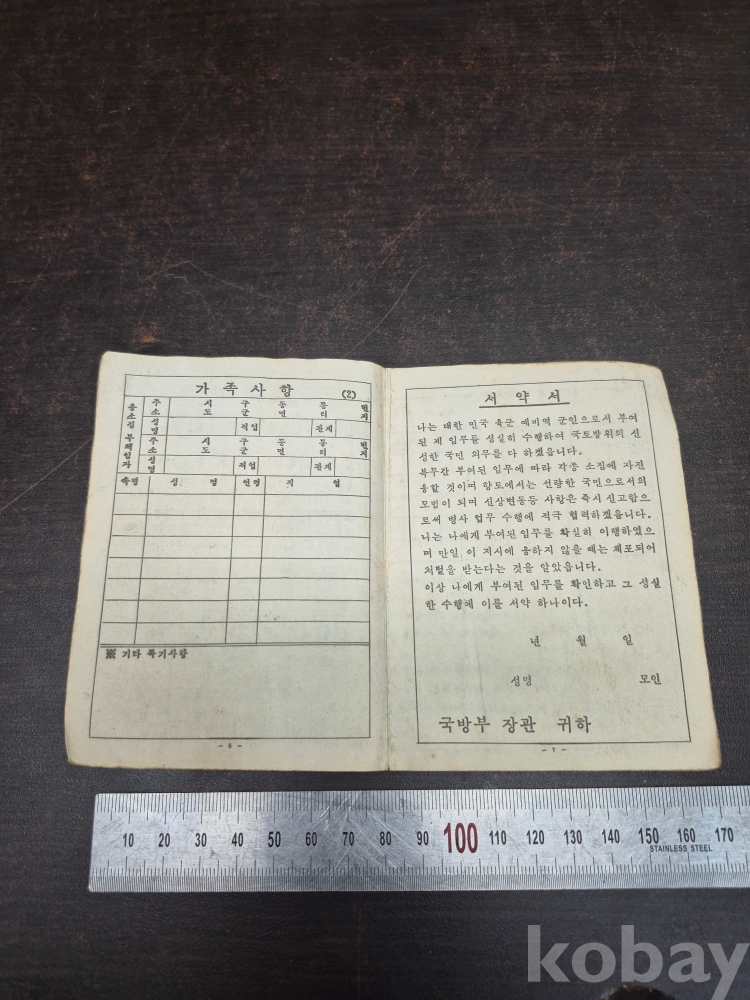 가족사항 (2)
주소 시도 구군 동면 통리 번지
성명 직업 관계
주소 시도 구군 동면 통리 번지
성명 직업 관계
성명 연령 직업
※ 기타 특기사항
- 6 -
서약서
나는 대한 민국 육군 예비역 군인으로서 부여
된 제 임무를 성실히 수행하여 국토방위의 신
성한 국민 의무를 다 하겠읍니다.
복무간 부여된 임무에 따라 각종 소집에 자진
응할 것이며 향토에서는 선량한 국민으로서의
모범이 되며 신상변동등 사항은 즉시 신고함으
로써 병사 업무 수행에 적극 협력하겠읍니다.
나는 나에게 부여된 임무를 확실히 이행하였으
며 만일 이 지시에 응하지 않을 때는 체포되어
처벌을 받는다는 것을 알았읍니다.
이상 나에게 부여된 임무를 확인하고 그 성실
한 수행에 이를 서약 하나이다.
년 월 일
성명 모인
국방부 장관 귀하
- 7 -
10 20 30 40 50 60 70 80 90 100 110 120 130 140 150 160 170
STAINLESS STEEL
kobay